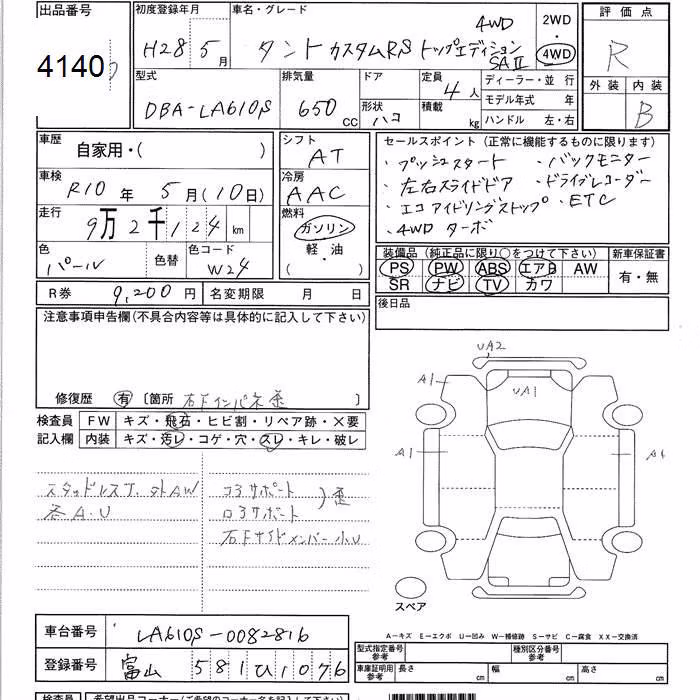 出品番号
4140
初度登録年月
H28 5月
車名・グレード
4WD
タント カスタムRS トップエディション
SAⅡ
2WD
・
4WD
評価点
R
外装 内装
B
型式
DBA-LA610S
排気量
650 CC
ドア
形状
ハコ
定員
4人
積載
kg
ディーラー・並行
モデル年式 年
ハンドル 左・右
車歴
自家用・( )
車検
R10年 5月(10日)
走行
9万2千124 km
色
パール
色替
色コード
W24
シフト
AT
冷房
AAC
燃料
ガソリン
軽・油
( )
セールスポイント (正常に機能するものに限ります)
・プッシュスタート ・バックモニター
・左右スライドドア ・ドライブレコーダー
・エコアイドリングストップ ・ETC
・4WD ターボ
装備品 (純正品に限り○をつけて下さい)
PS PW ABS エアB AW
SR ナビ TV カワ
新車保証書
有・無
後日品
R券 9,200円
名変期限 月 日
注意事項申告欄(不具合内容等は具体的に記入して下さい)
修復歴 有 〔箇所 右Fインパネ歪 〕
検査員
記入欄
FW キズ・飛石・ヒビ割・リペア跡・×要
内装 キズ・汚レ・コゲ・穴・スレ・キレ・破レ
スタッドレスT.外AW
各A・U
コアサポート
ロアサポート
)歪
右Fサイドメンバー小U
UA2
UA1
A1
A1
スペア
A-キズ E-エクボ U-凹み W-補修跡 S-サビ C-腐食 XX-交換済
車台番号 LA610S-0082816
登録番号 富山 581ひ1076
型式指定番号
参考
種別区分番号
参考
車庫証明用
参考
長さ cm
幅 cm
高さ cm
検査員
希望出品コーナー(ご希望のコーナー名を記入して下さい)